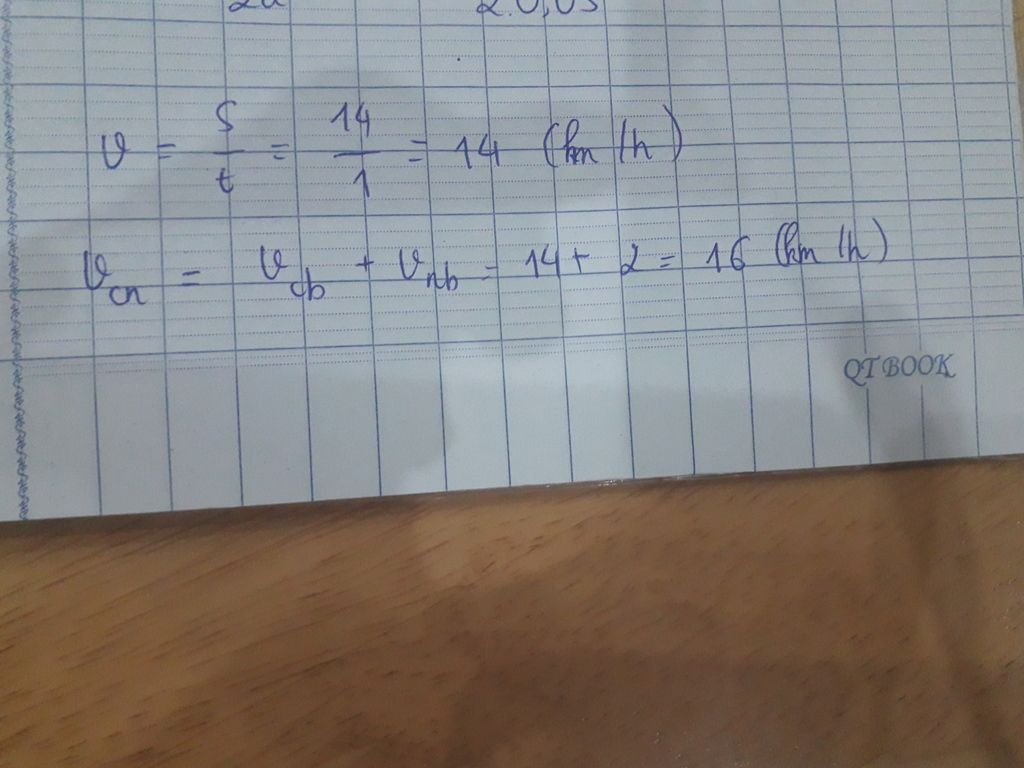 2a 2.0,05
v = S/t = 14/1 = 14 (km/h)
v_cn = v_cb + v_nb = 14 + 2 = 16 (km/h)
QTBOOK